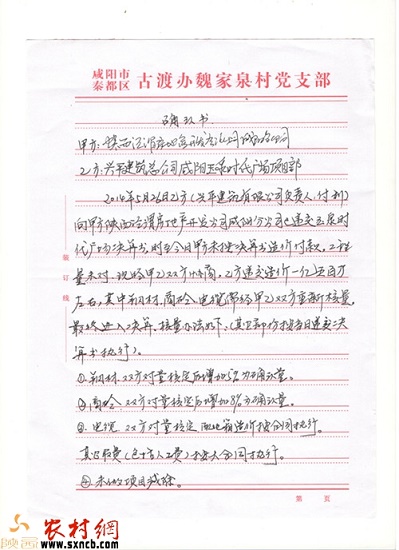 咸阳市
秦都区 古渡办魏家泉村党支部
确认书
甲方：陕西泾渭房地产开发公司咸阳分公司
乙方：兴平建筑总公司咸阳玉泉时代广场项目部
2014年5月26日乙方（兴平建筑有限公司负责人：付利）
向甲方陕西泾渭房地产开发公司咸阳分公司已递交玉泉时
代广场决算书，时至今日甲方未按决算书造价付款，工程
量未对，现经甲乙双方协商，乙方递交造价一亿五百万
左右，其中钢材、商砼、电缆需经甲乙双方重新核量，
最终进入决算。核量办法如下：（其它部份按当日递交决
算书执行）。
①钢材：双方对量核定后增加5%为确认量。
②商砼：双方对量核定后增加8%为确认量。
③电缆：双方对量核定，配电箱造价按合同执行。
其它取费（包含人工费）按大合同执行。
④未做项目减除。
装订线
第 页
陕西农村網
www.sxncb.com